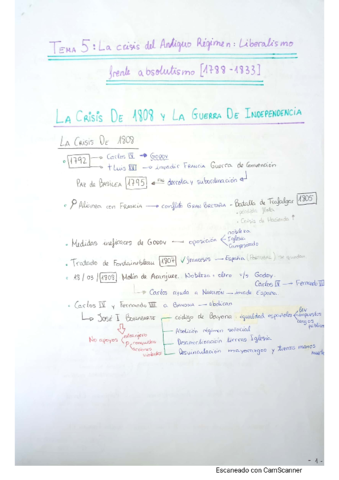 TEMA 5: La crisis del Antiguo Régimen: Liberalismo
frente absolutismo [1788-1833]
LA CRISIS DE 1808 Y LA GUERRA DE INDEPENDENCIA
LA CRISIS DE 1808
1792 → Carlos IV → Godoy
→ + Luis XVI → invadir Francia Guerra de Convención
Paz de Basilea 1795 derrota y subordinación
Alianza con Francia → conflicto Gran Bretaña - Batalla de Trafalgar 1805
nobleza
Medidas Godoy → oposición Iglesia
Campesinado
Tratado de Fontainebleau 1807 franceses → España
18/03/1808 Motín de Aranjuez. Nobleza + clero v/s Godoy
Carlos IV → Fernando VII
Carlos ayuda a Napoleón → invade España
Carlos IV y Fernando VII a Bayona → abdican
José I Bonaparte → código de Bayona: igualdad españoles ley
impuestos
→ Abolición régimen señorial
No apoyos
→ Desamortización tierras Iglesia
→ Desvinculación mayorazgos y tierras manos
- 1 -
Escaneado con CamScanner